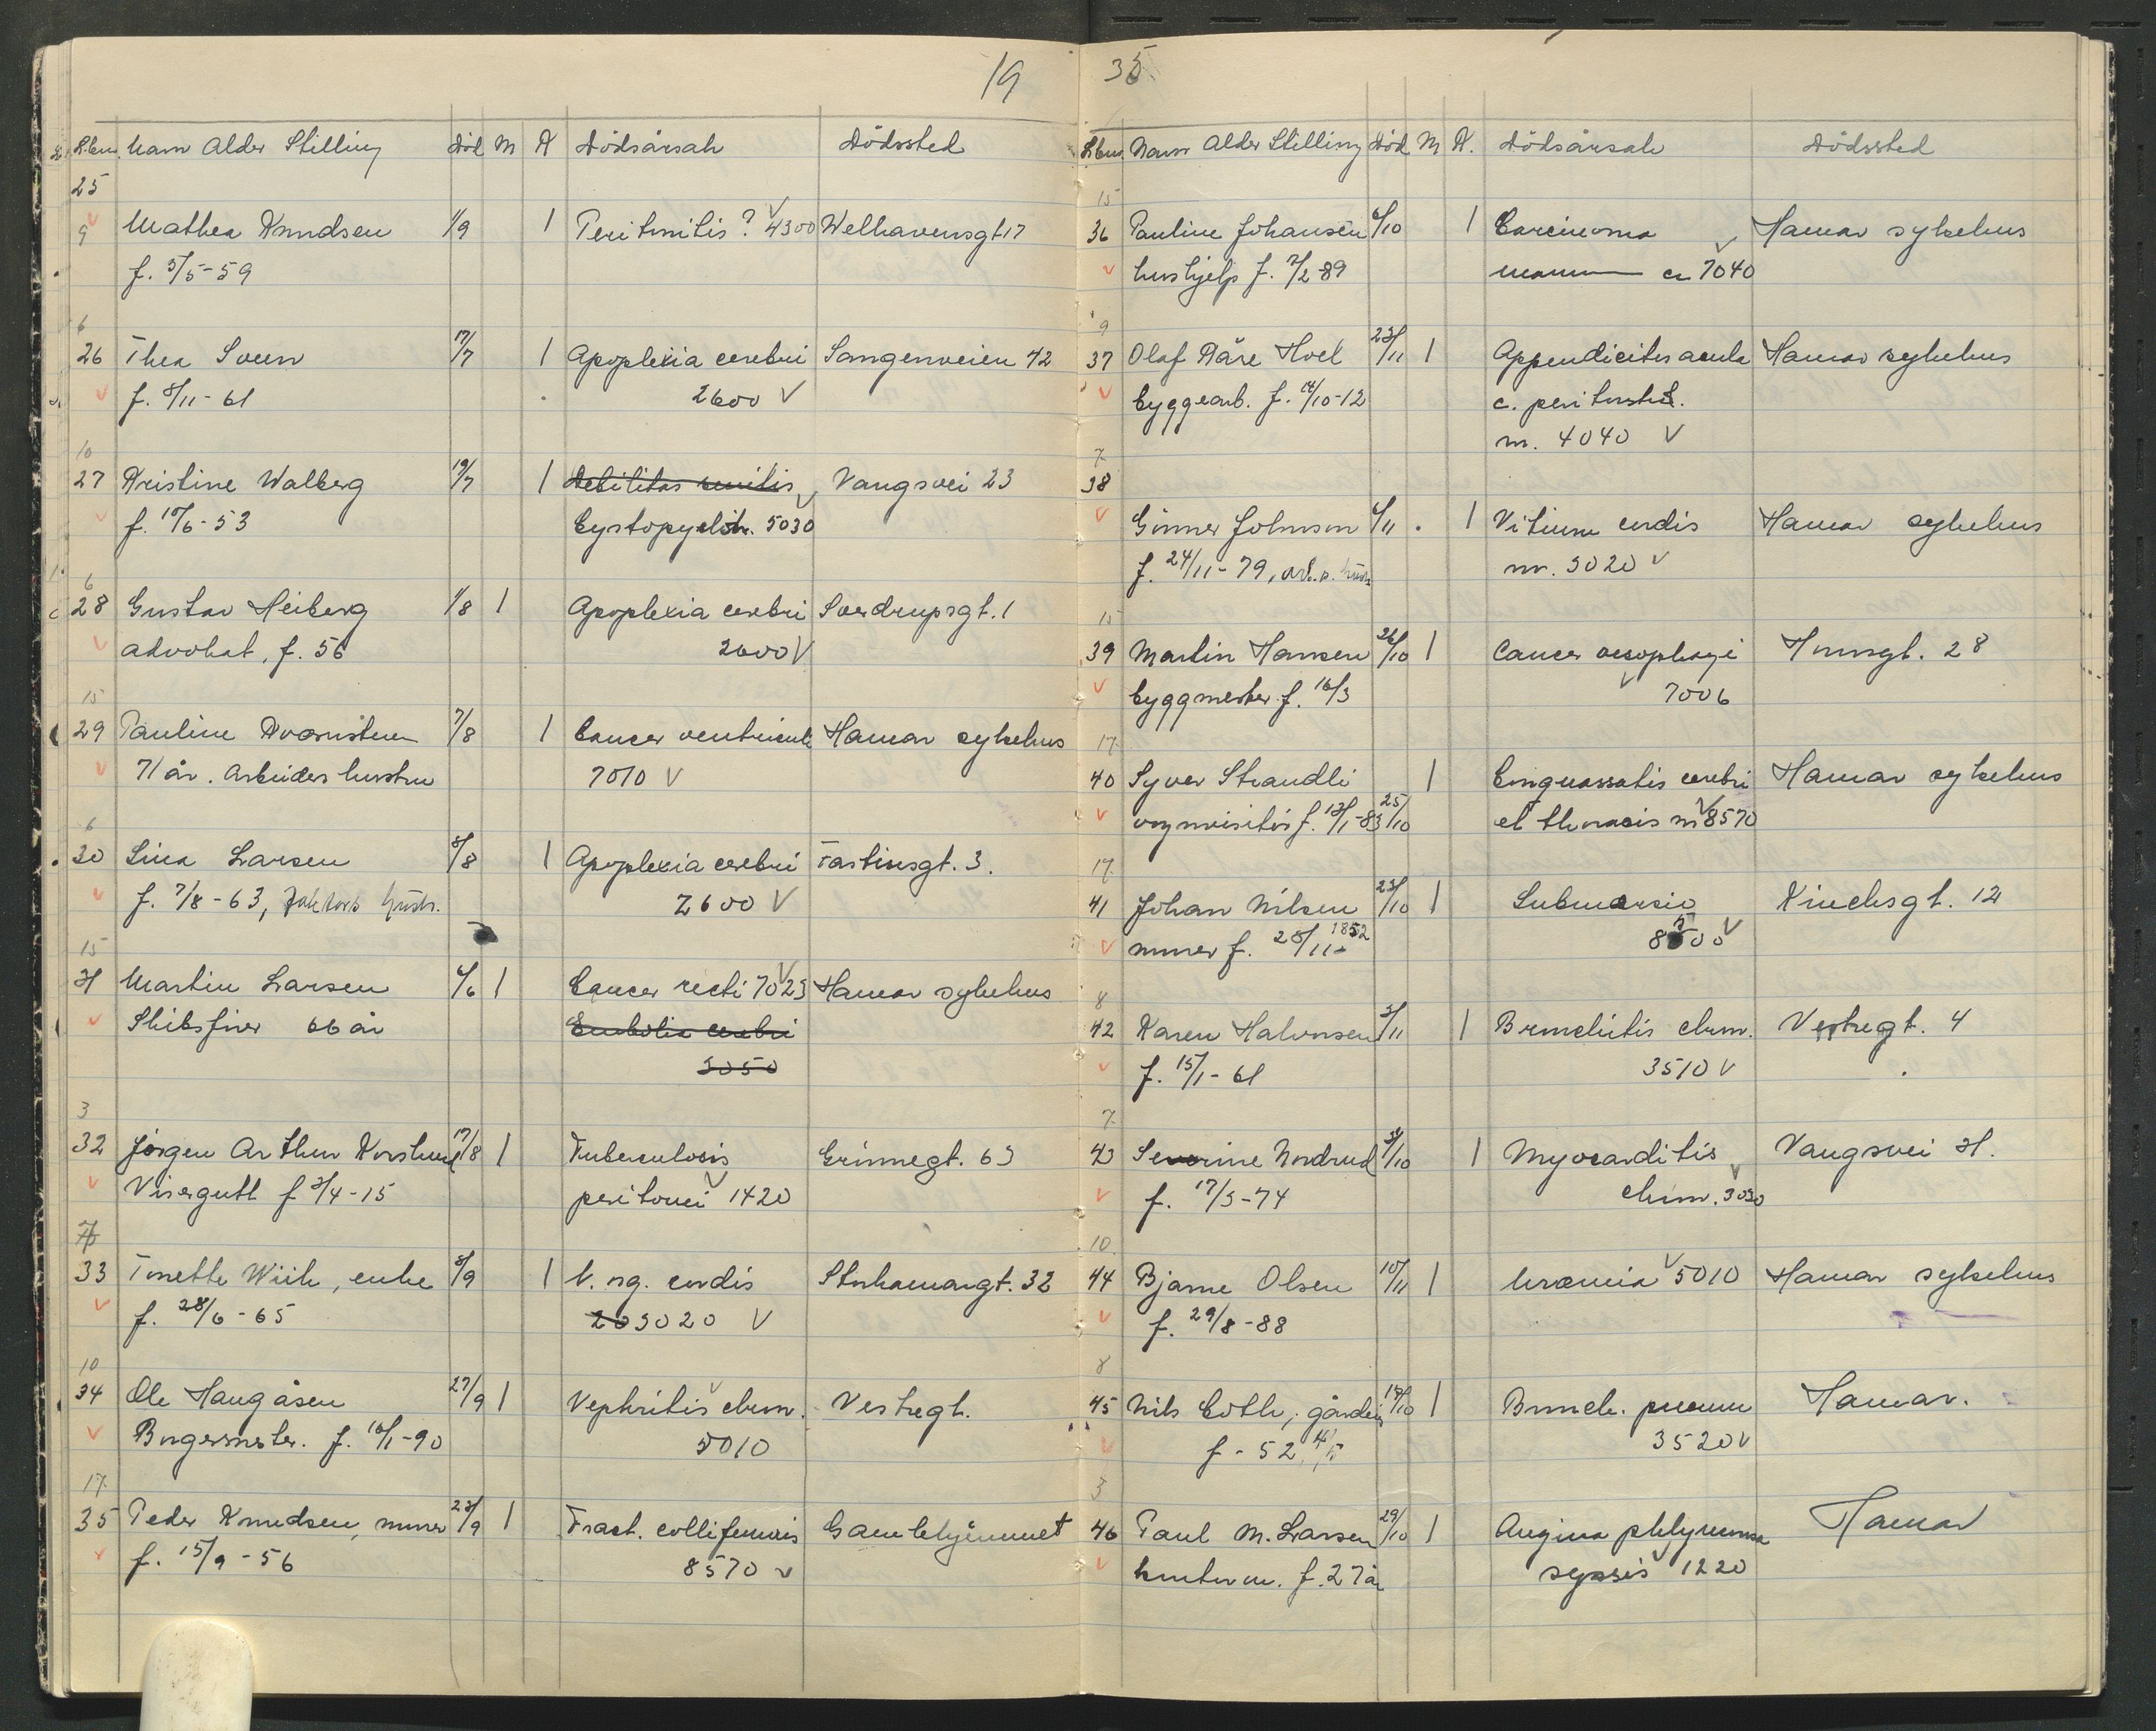 19
L.br. Navn Alder Stilling Död M K Dödsårsak Dödssted
25
9 Mathea Knudsen 1/9 1 Peritonitis? 4300 Welhavensgt 17
f. 3/5-59
6
26 Thea Sveen 17/7 1 Apoplexia cerebri Sangenveien 42
f. 8/11-61 2600 V
10
27 Kristine Walberg 19/7 1 Debilitas senilis Vangsvei 23
f. 10/6-53 Cystopyelitis. 5030
6
28 Gustav Heiberg 1/8 1 Apoplexia cerebri Sverdrupsgt. 1
advokat, f. 56 2600 V
15
29 Pauline Kværnstuen 7/8 1 Cancer ventriculi Hamar sykehus
71 år. Arbeiders hustru 7010 V
6
30 Lina Larsen 8/8 1 Apoplexia cerebri Fastingsgt. 3.
f. 7/8-63, faktors hustr. 2600 V
15
31 Martin Larsen 6/6 1 Cancer recti 7023 Hamar sykehus
Skibsfører 66 år Embolia cerebri
3050
3
32 Jörgen Arthur Korslund 17/8 1 Tuberculosis Grönnegt. 63
Visergutt f 3/4-15 peritonei 1420
7
33 Tonette Wiik, enke 8/9 1 V. og. cordis Storhamargt. 32
f. 28/6-65 20 3020 V
10
34 Ole Haugåsen 27/9 1 Nephritis chron. Vestregt.
Borgermester. f. 10/1-90 5010
17
35 Peder Knudsen, murer 23/9 1 Fract. colli femoris Gamlehjemmet
f. 15/9-56 8570 V
35
L.br. Navn Alder Stilling Död M K. Dödsårsak Dödssted
15
36 Pauline Johansen 6/10 1 Carcinoma Hamar sykehus
hushjelp f. 2/2-89 mamm 7040
9
37 Olaf Kåre Hoel 23/11 1 Appendicitis acuta Hamar sykehus
byggearb. f. 14/10-12 c. peritonit.
nr. 4040 V
7
38
Ginner Johnson 6/11 1 Vitium cordis Hamar sykehus
f. 24/11-79, nr. 3020 V
15
39 Martin Hansen 26/10 1 Cancer oesophagi Hunsgt. 28
byggmester f. 16/3 7006
17
40 Syver Strandli 1 Conquassatis cerebri Hamar sykehus
vognvisitör f. 13/1-83 25/10 et thoracis nr 8570
17
41 Johan Nilsen 23/10 1 Submersio Kinchsgt. 12
murer f. 28/11-1852 8500 V
8
42 Karen Halvorsen 3/11 1 Bronchitis chron. Vestregt. 4
f. 15/1-61 3510 V
7
43 Severine Nordrud 31/10 1 Myocarditis Vangsvei 31.
f. 17/3-74 chron. 3030
10
44 Bjarne Olsen 10/11 1 Uræmia 5010 Hamar sykehus
f. 29/8-88
8
45 Nils Coth, gårdeier 18/10 1 Bronch. pneum Hamar.
f - 52 4/5 3520 V
3
46 Paul M. Larsen 29/10 1 Angina phlegmonosa Hamar
kontorm. f. 27 år sepsis 1220